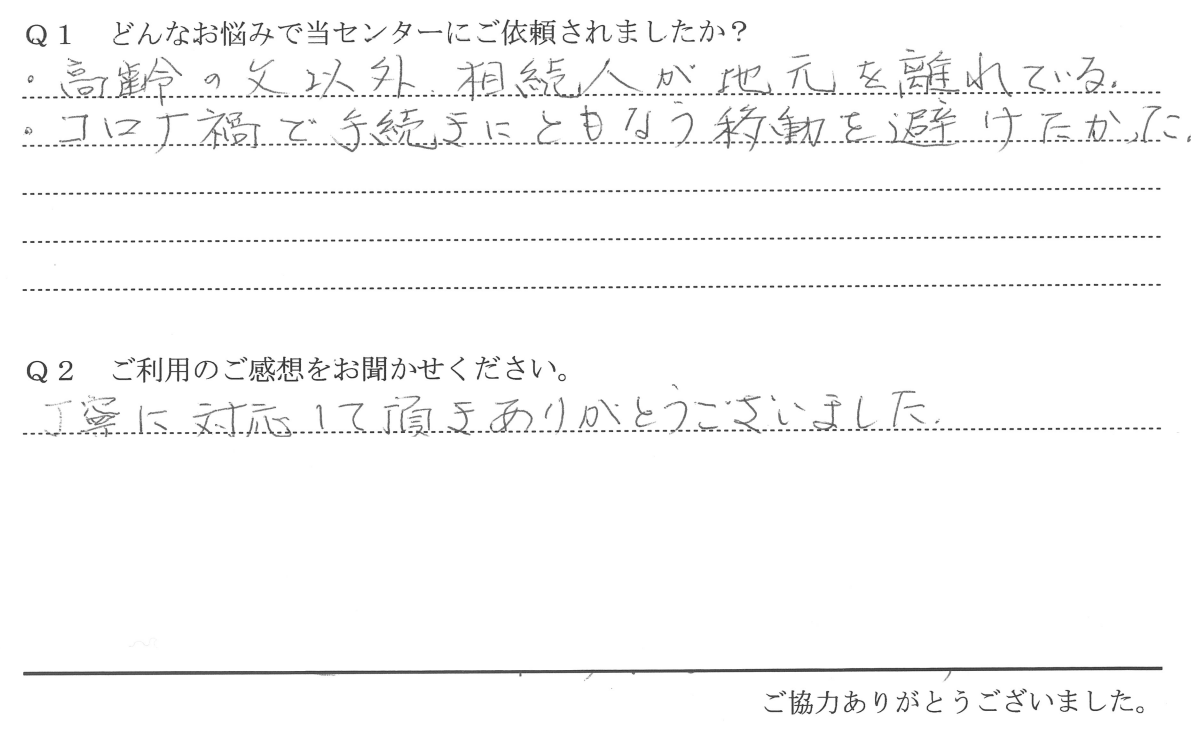 Q1 どんなお悩みで当センターにご依頼されましたか?
・高齢の父以外、相続人が地元を離れている。
・コロナ禍で手続きにともなう移動を避けたかった。
Q2 ご利用のご感想をお聞かせください。
丁寧に対応して頂きありがとうございました。
ご協力ありがとうございました。